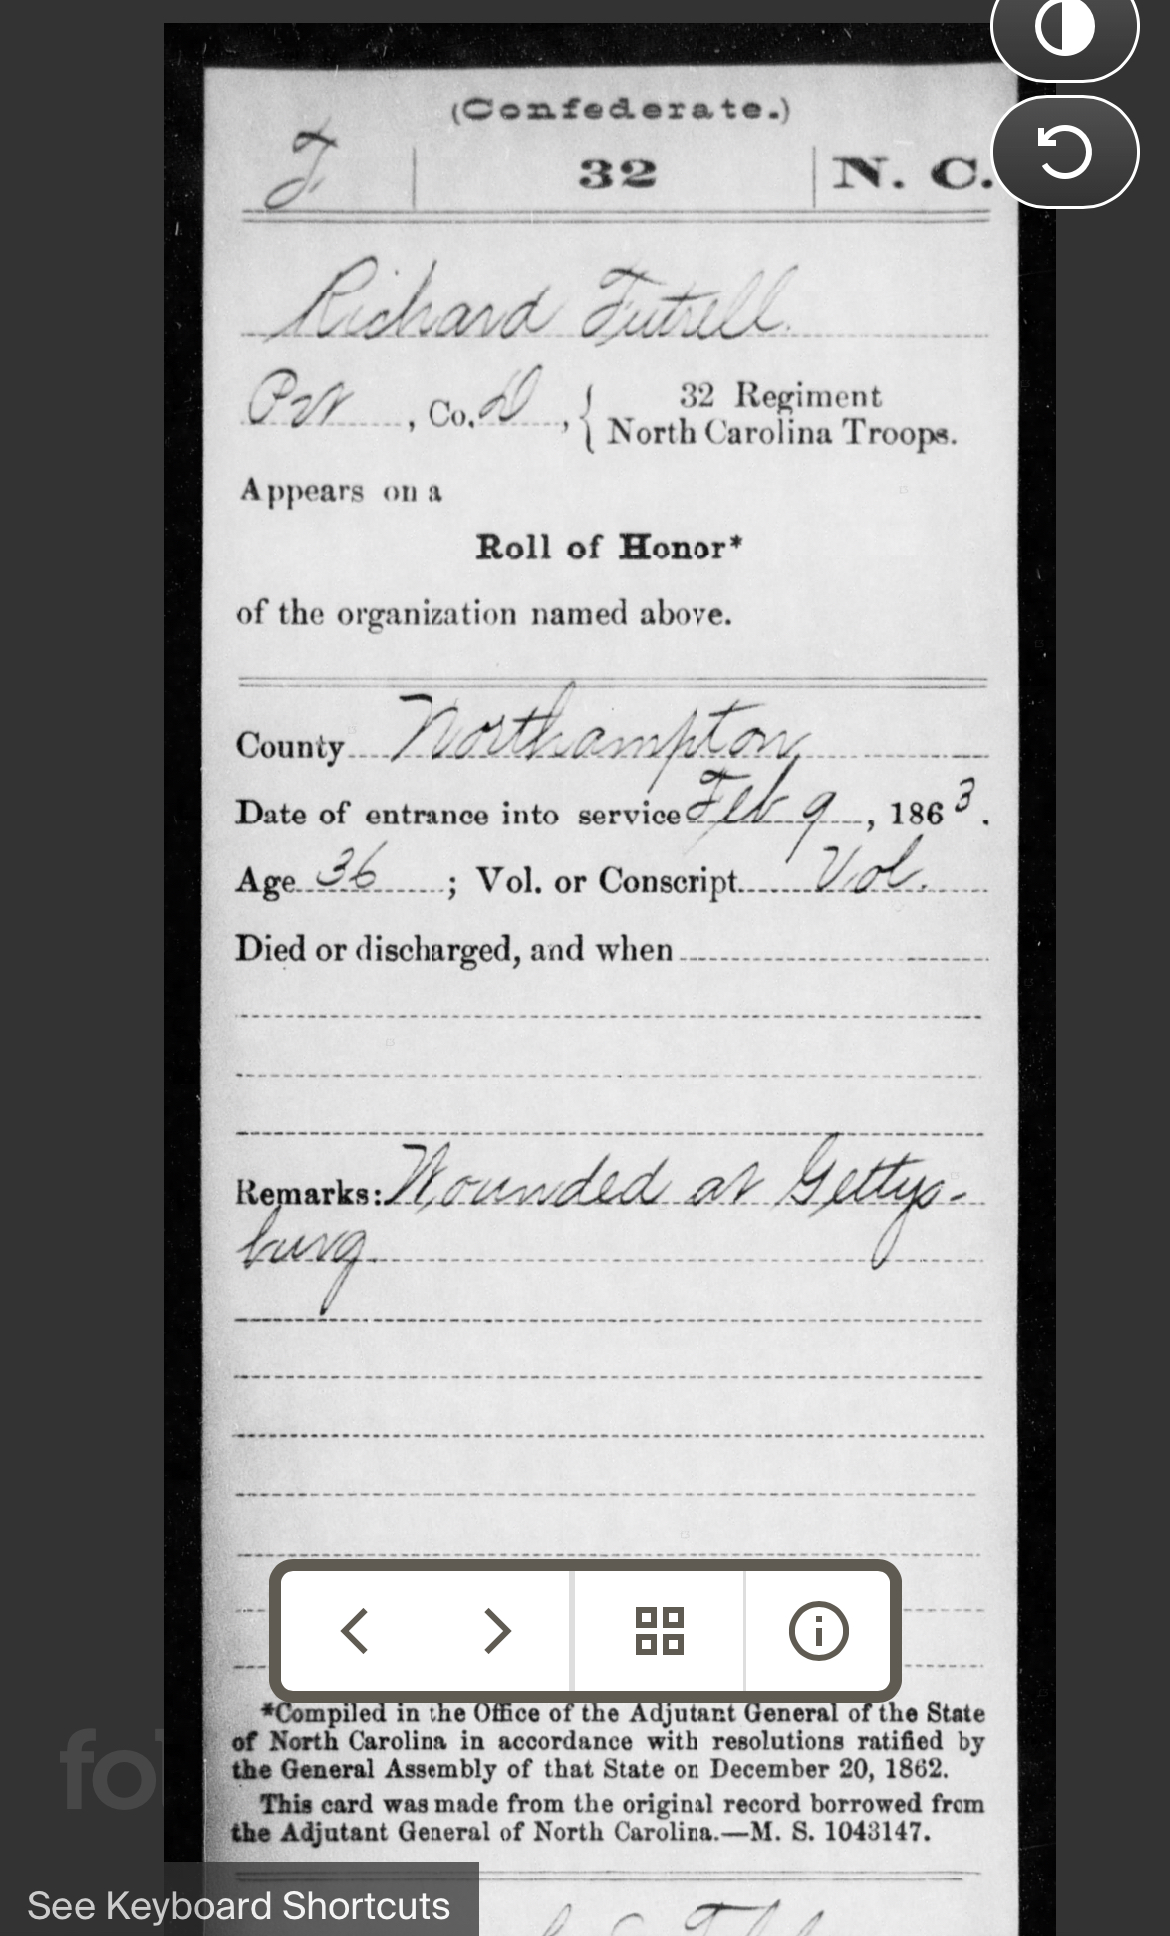 (Confederate.)
F 32 N. C.
Richard Futrell.
Pvt, Co. D, { 32 Regiment
North Carolina Troops.
Appears on a
Roll of Honor*
of the organization named above.
County Northampton
Date of entrance into service Feb 9, 1863.
Age 36; Vol. or Conscript Vol.
Died or discharged, and when
Remarks: Wounded at Gettys-
burg.
*Compiled in the Office of the Adjutant General of the State
of North Carolina in accordance with resolutions ratified by
the General Assembly of that State on December 20, 1862.
This card was made from the original record borrowed from
the Adjutant General of North Carolina.—M. S. 1043147.
See Keyboard Shortcuts